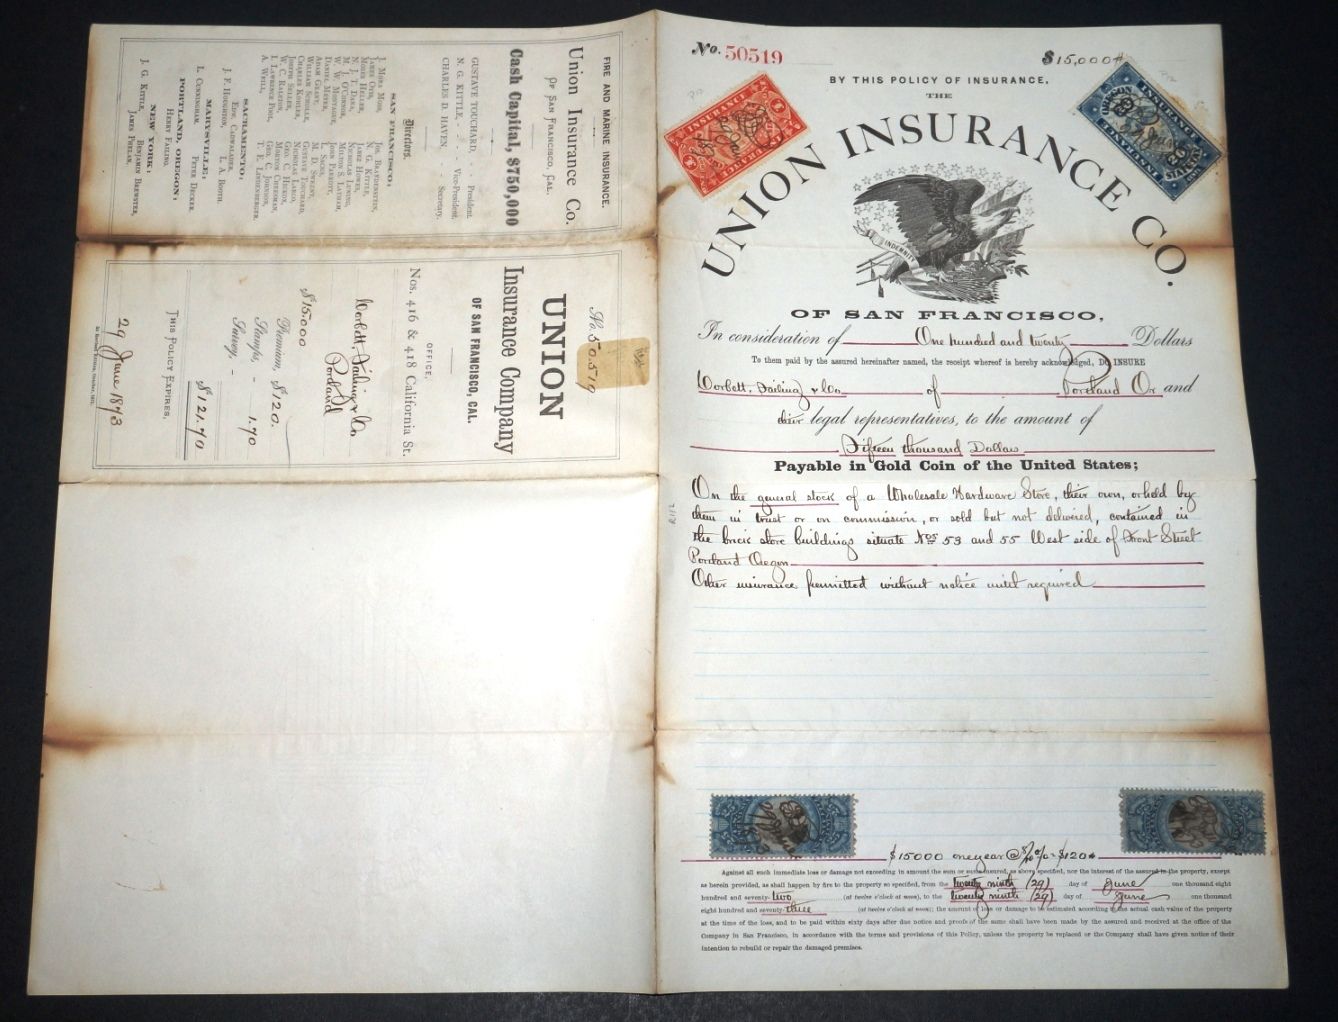 No. 50519
$15,000
BY THIS POLICY OF INSURANCE,
THE
UNION INSURANCE CO.
INDEMNITY
OF SAN FRANCISCO,
In consideration of One hundred and twenty Dollars
To them paid by the assured hereinafter named, the receipt whereof is hereby acknowledged, DO INSURE
Corbett, Failing & Co. of Portland Or and
their legal representatives, to the amount of
Fifteen thousand Dollars
Payable in Gold Coin of the United States;
On the general stock of a Wholesale Hardware Store, their own, or held by
them in trust or on commission, or sold but not delivered, contained in
the brick store buildings situate Nos 53 and 55 West side of Front Street
Portland Oregon
Other insurance permitted without notice until required
$15000 one year @ 8/10 % $120
Against all such immediate loss or damage not exceeding in amount the sum or sums insured, as above specified, nor the interest of the assured in the property, except
as herein provided, as shall happen by fire to the property so specified, from the twenty ninth (29) day of June one thousand eight
hundred and seventy-two (at twelve o'clock at noon), to the twenty ninth (29) day of June one thousand
eight hundred and seventy-three (at twelve o'clock at noon); the amount of loss or damage to be estimated according to the actual cash value of the property
at the time of the loss, and to be paid within sixty days after due notice and proofs of the same shall have been made by the assured and received at the office of the
Company in San Francisco, in accordance with the terms and provisions of this Policy, unless the property be replaced or the Company shall have given notice of their
intention to rebuild or repair the damaged premises.
FIRE AND MARINE INSURANCE.
Union Insurance Co.
OF SAN FRANCISCO, CAL.
Cash Capital, $750,000
GUSTAVE TOUCHARD, - President.
N. G. KITTLE, - - Vice-President.
CHARLES D. HAVEN, - - Secretary.
Directors.
SAN FRANCISCO:
J. MORA MOSS,
JAMES OTIS,
MOSES HELLER,
N. J. T. DANA,
M. J. O'CONNOR,
W. W. MONTAGUE,
DANIEL MEYER,
ADAM GRANT,
WILLIAM SCHOLLE,
CHARLES KOHLER,
JOSEPH SELLER,
W. C. RALSTON,
I. LAWRENCE POOL,
A. WEILL,
JOS. BRANDENSTEIN,
N. G. KITTLE,
JABEZ HOWES,
NICHOLAS LUNING,
MILTON S. LATHAM,
JOHN PARROTT,
M. D. SWEENY,
GUSTAVE TOUCHARD,
NICHOLAS LARCO,
GEO. C. HICKOX,
MORTON CHEESMAN,
GEO. C. JOHNSON,
T. E. LINDENBERGER.
SACRAMENTO:
EDW. CADWALADER,
J. F. HOUGHTON,
L. A. BOOTH.
MARYSVILLE:
L. CUNNINGHAM,
PETER DECKER.
PORTLAND, OREGON:
HENRY FAILING.
NEW YORK:
J. G. KITTLE,
BENJAMIN BREWSTER,
JAMES PHELAN,
No. 50.519
UNION
Insurance Company
OF SAN FRANCISCO, CAL.
OFFICE,
Nos. 416 & 418 California St.
Corbett, Failing & Co
Portland
$15.000
Premium, $120.
Stamps, - 1.70
Survey, -
$121.70
THIS POLICY EXPIRES,
29 June 1873